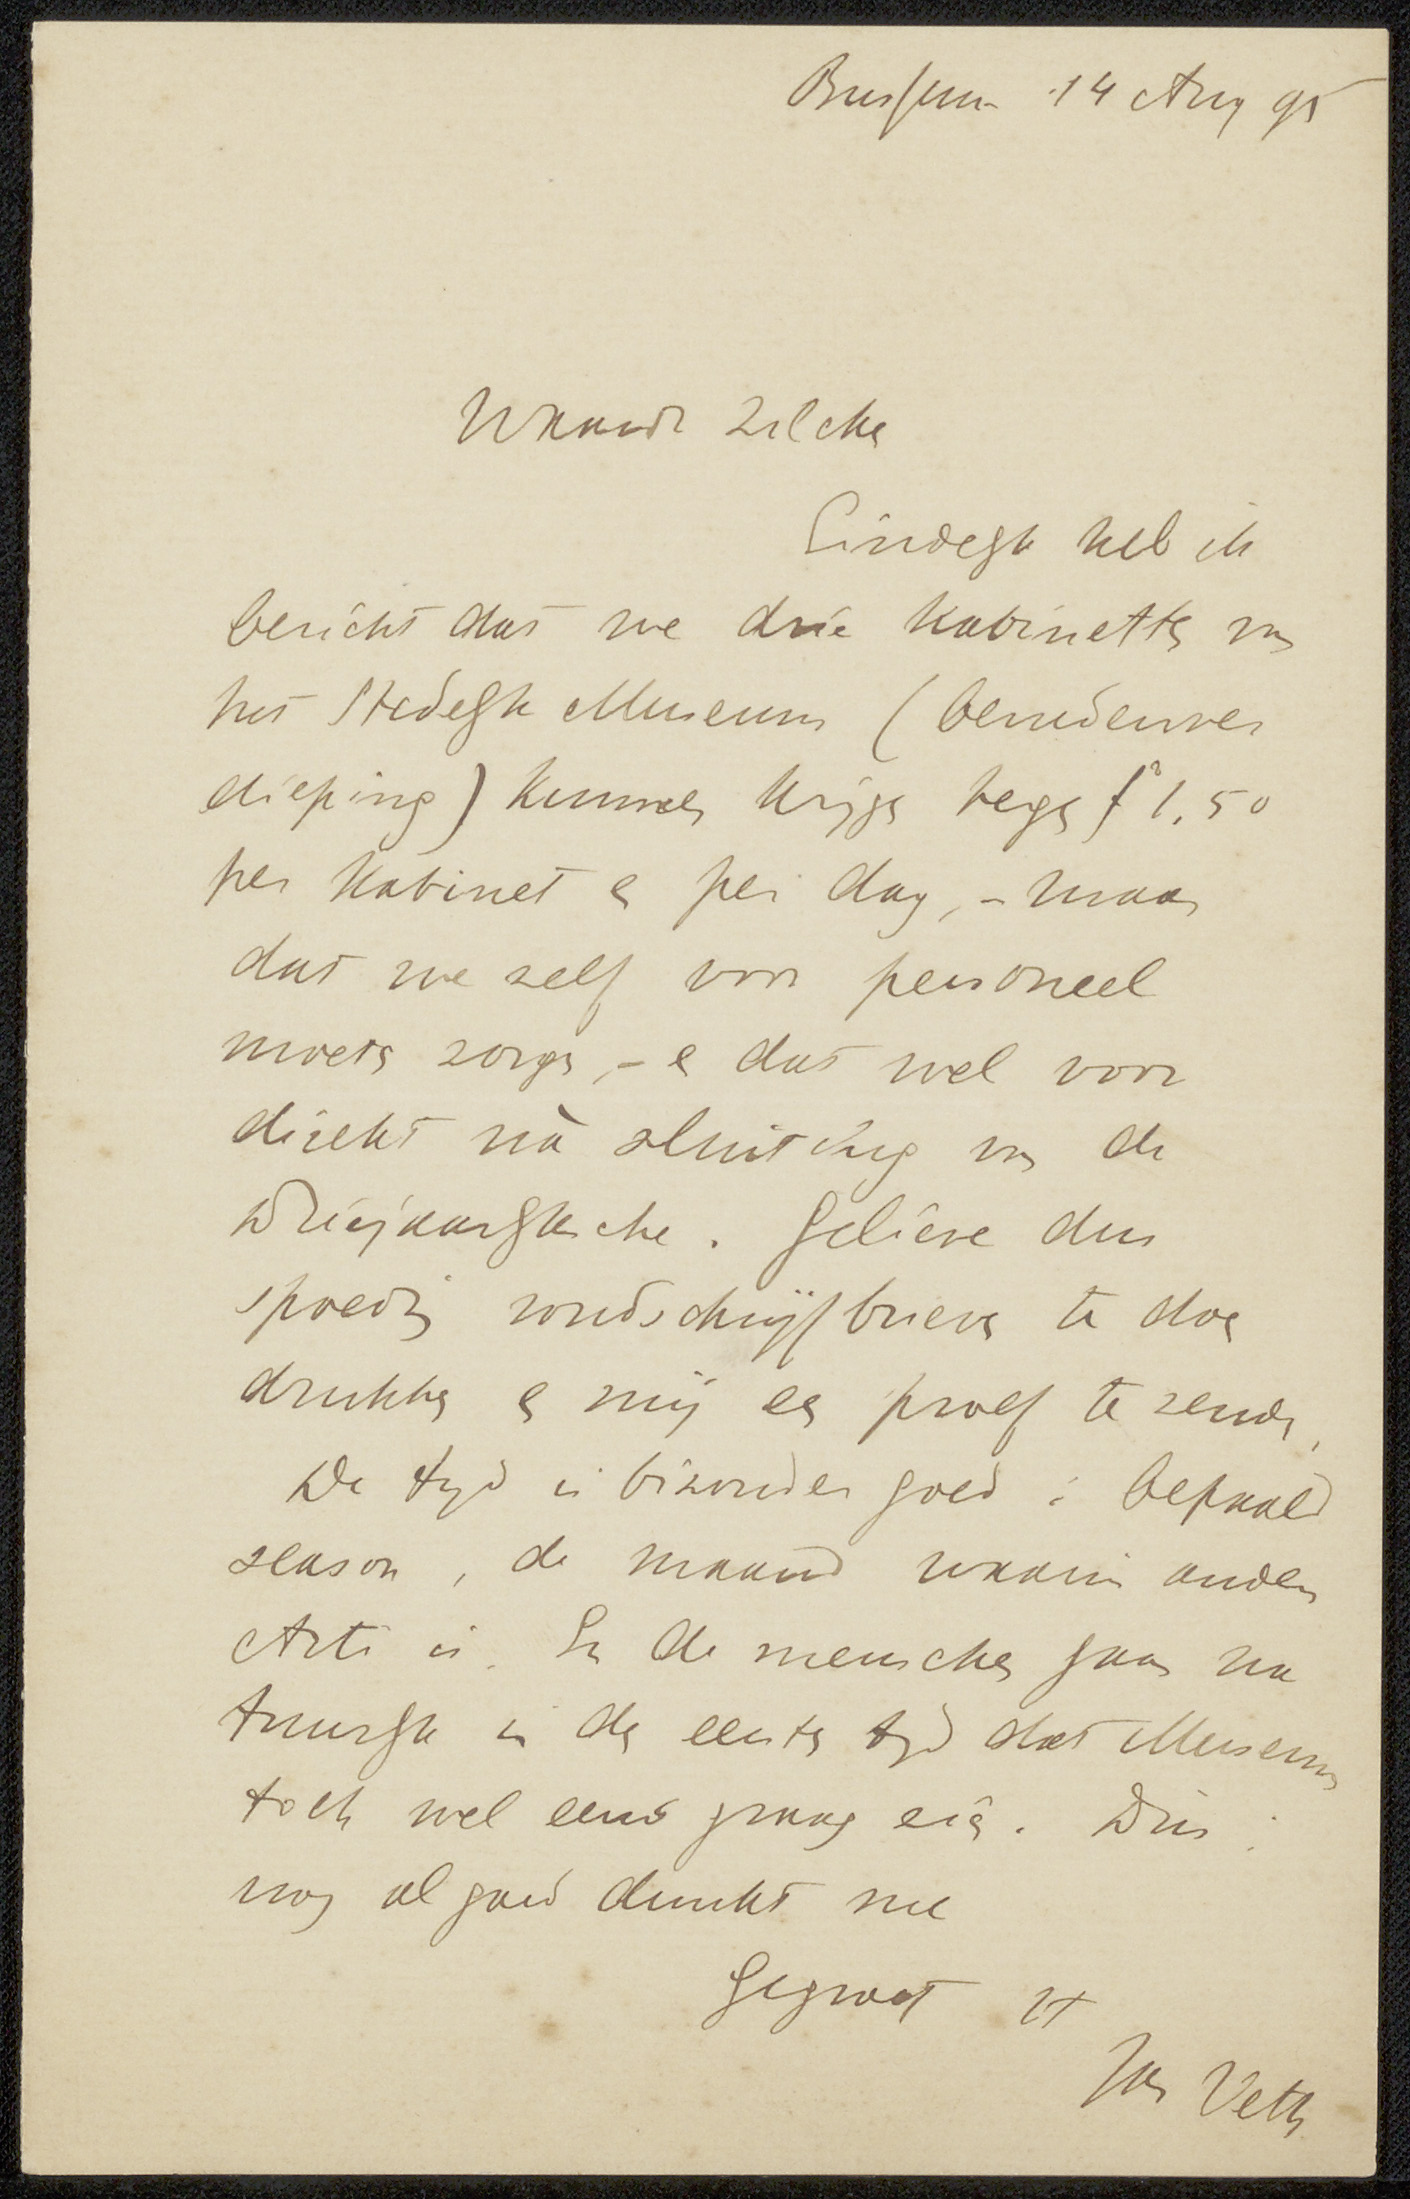 Bussum 14 Aug 95
Waarde Zilcken
Eindelijk heb ik
bericht dat we drie kabinetten van
het Stedelijk Museum (benedenver
dieping) kunnen krijgen tegen f 1.50
per kabinet en per dag, - maar
dat we zelf voor personeel
moeten zorgen, - en dat wel voor
direkt nà sluiting van de
driejaarlijksche. Gelieve dus
spoedig rondschrijfbrieven te doen
drukken en mij een proef te zenden,
De tijd is bizonder goed: bepaald
season, de maand waarin anders
Arti is. En de menschen gaan na
tuurlijk in den eersten tijd dat Museum
toch wel eens graag eens. Dus:
nog al goed dunkt me
Gegroet tt
Jan Veth